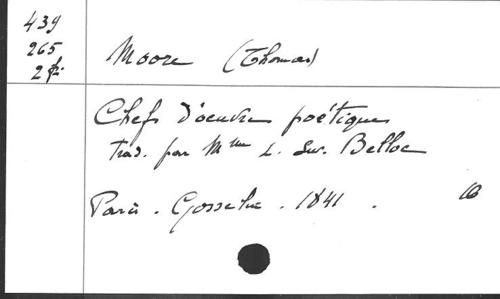 439
265
2 fi.
Moore (Thomas)
Chefs d'oeuvre poétiques
trad. par Mme L. Sw. Belloc
Paris. Gosselin. 1841.